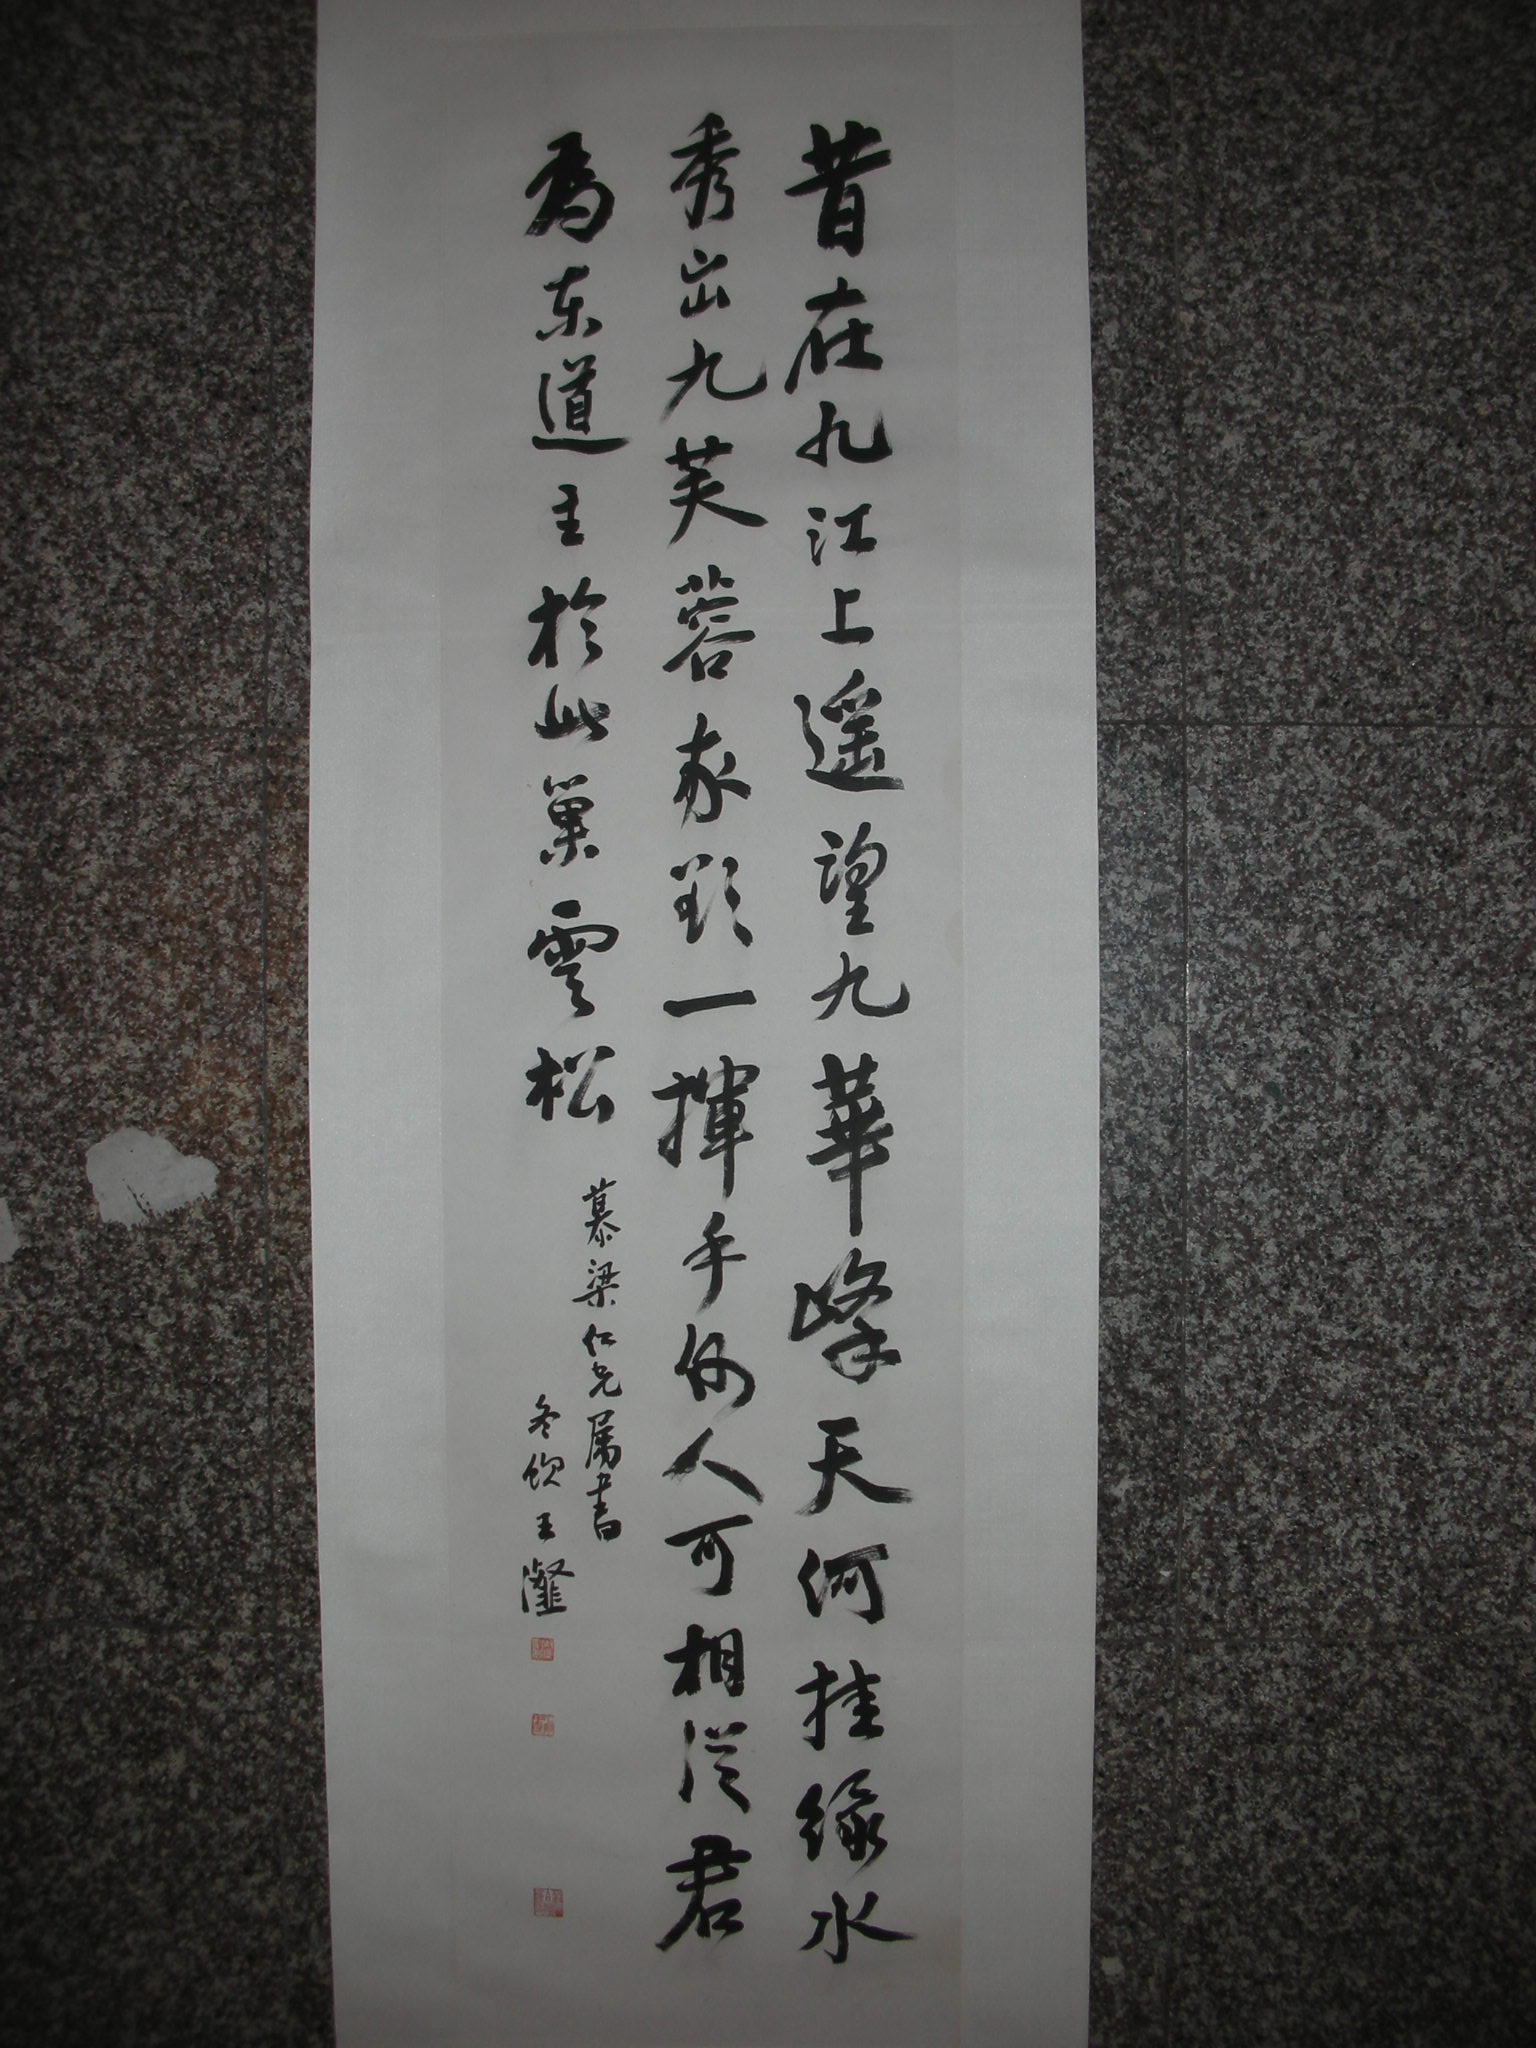 昔在九江上遥望九華峰天何挂緑水
秀出九芙蓉我欲一揮手何人可相從君
為東道主於此巢雲松
慕梁仁兄属書
冬飲王瀣